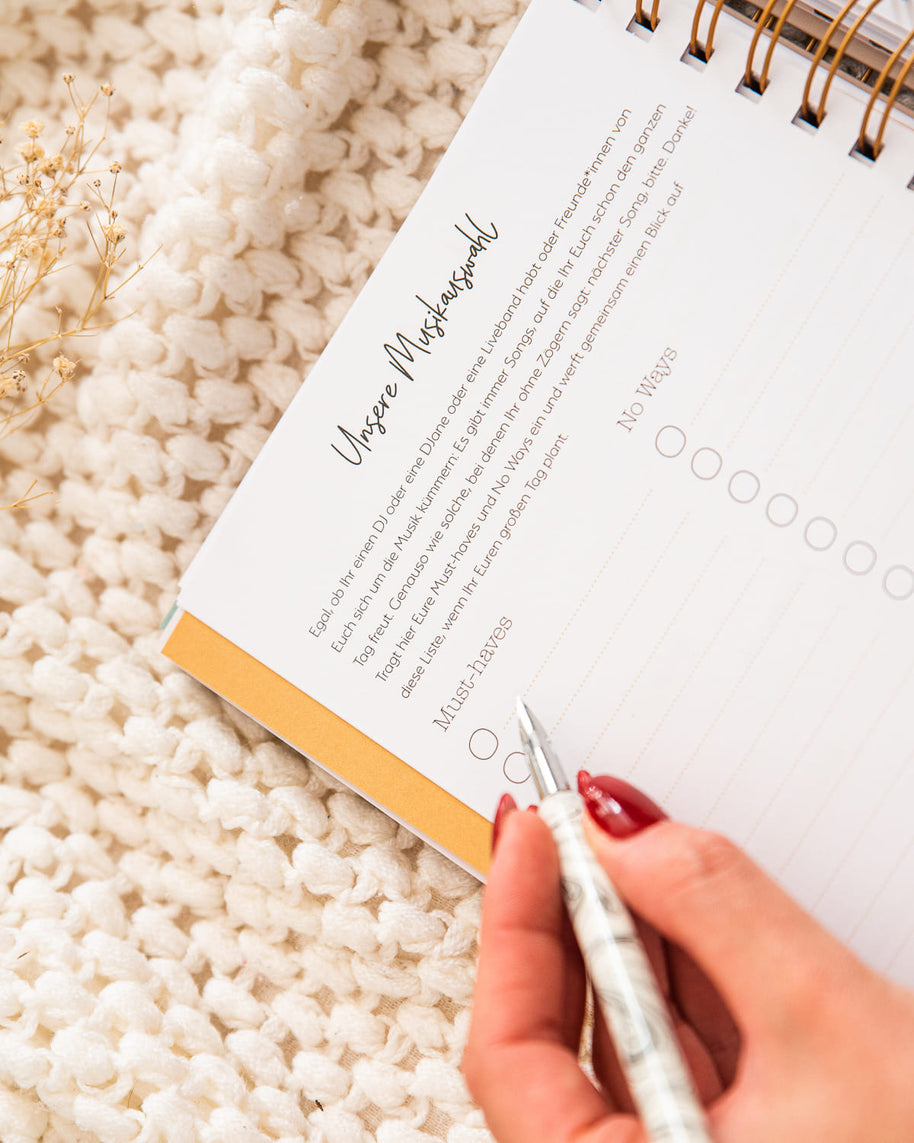 Unsere Musikauswahl
Egal, ob Ihr einen DJ oder eine DJane oder eine Liveband habt oder Freunde*innen von
Euch sich um die Musik kümmern: Es gibt immer Songs, auf die Ihr Euch schon den ganzen
Tag freut. Genauso wie solche, bei denen Ihr ohne Zögern sagt: nächster Song, bitte. Danke!
Tragt hier Eure Must-haves und No Ways ein und werft gemeinsam einen Blick auf
diese Liste, wenn Ihr Euren großen Tag plant.
Must-haves
No Ways